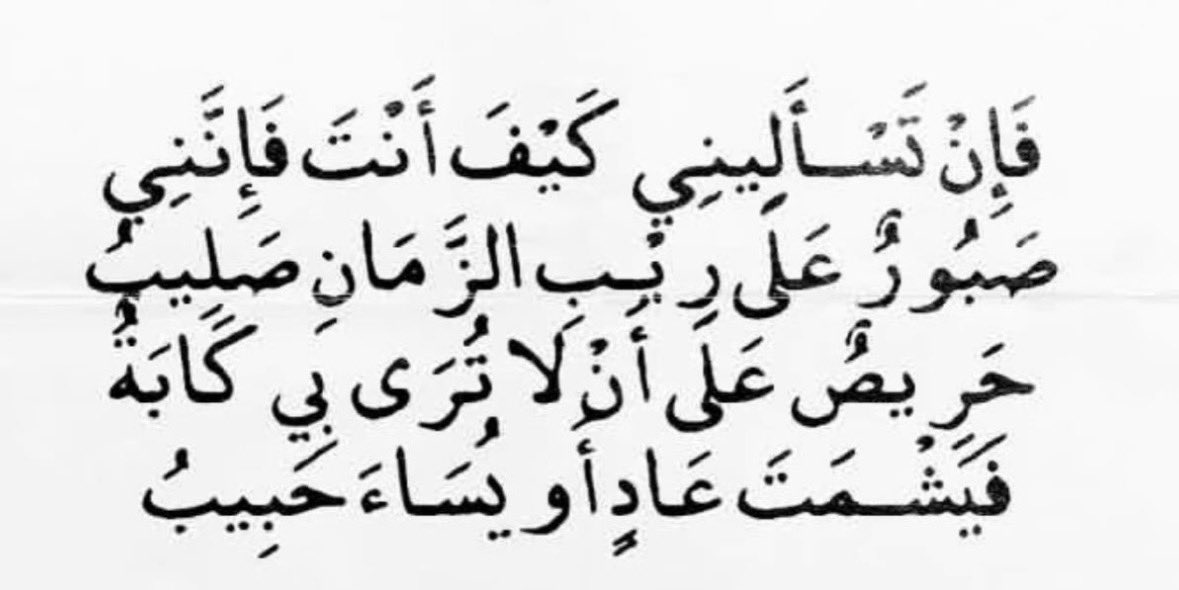 فَإِنْ تَسْأَلِينِي كَيْفَ أَنْتَ فَإِنَّنِي
صَبُورٌ عَلَى رِيْبِ الزَّمَانِ صَلِيبُ
حَرِيصٌ عَلَى أَنْ لَا تُرَى بِي كَابَةٌ
فَيَشْمَتَ عَادٍ أَو يُسَاءَ حَبِيبُ